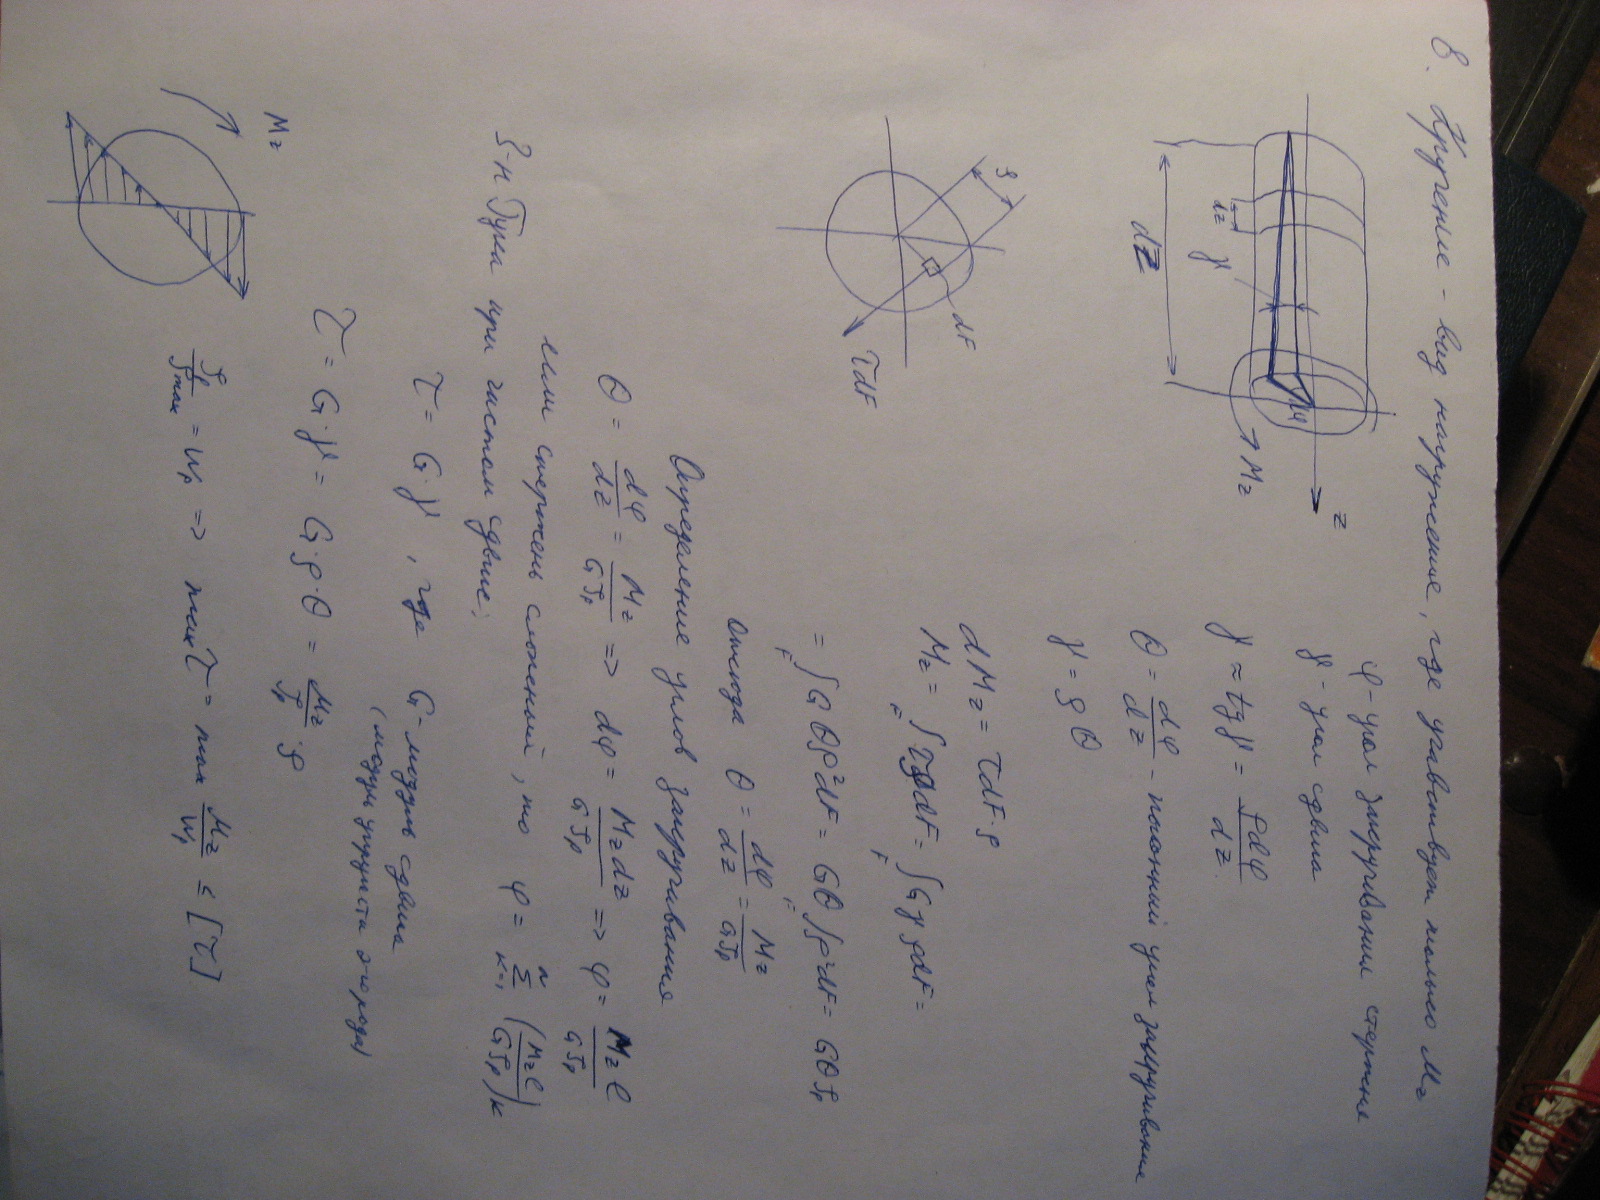 8. Кручение - вид нагружения, где учавствует только Mz
z
Mz
φ
γ
dz
dz
φ - угол закручивания стержня
γ - угол сдвига
γ ≈ tgγ = ρdφ/dz
θ = dφ/dz - погонный угол закручивания
γ = ρθ
ρ
dF
τdF
dMz = τdF·ρ
Mz = ∫F τρdF = ∫F Gγρ dF =
= ∫F Gθρ²dF = Gθ∫F ρ²dF = GθJρ
Отсюда θ = dφ/dz = Mz/GJρ
Определение углов закручивания
θ = dφ/dz = Mz/GJρ => dφ = Mzdz/GJρ => φ = Mzl/GJρ
если стержень сложный, то φ = Σ(n, к=1) (Mzl/GJρ)к
З-н Гука при чистом сдвиге:
τ = G·γ, где G - модуль сдвига
(модуль упругости 2-го рода)
τ = G·γ = G·ρ·θ = Mz/Jρ ·ρ
Mz
Jρ/ρmax = Wρ => max τ = max Mz/Wρ ≤ [τ]